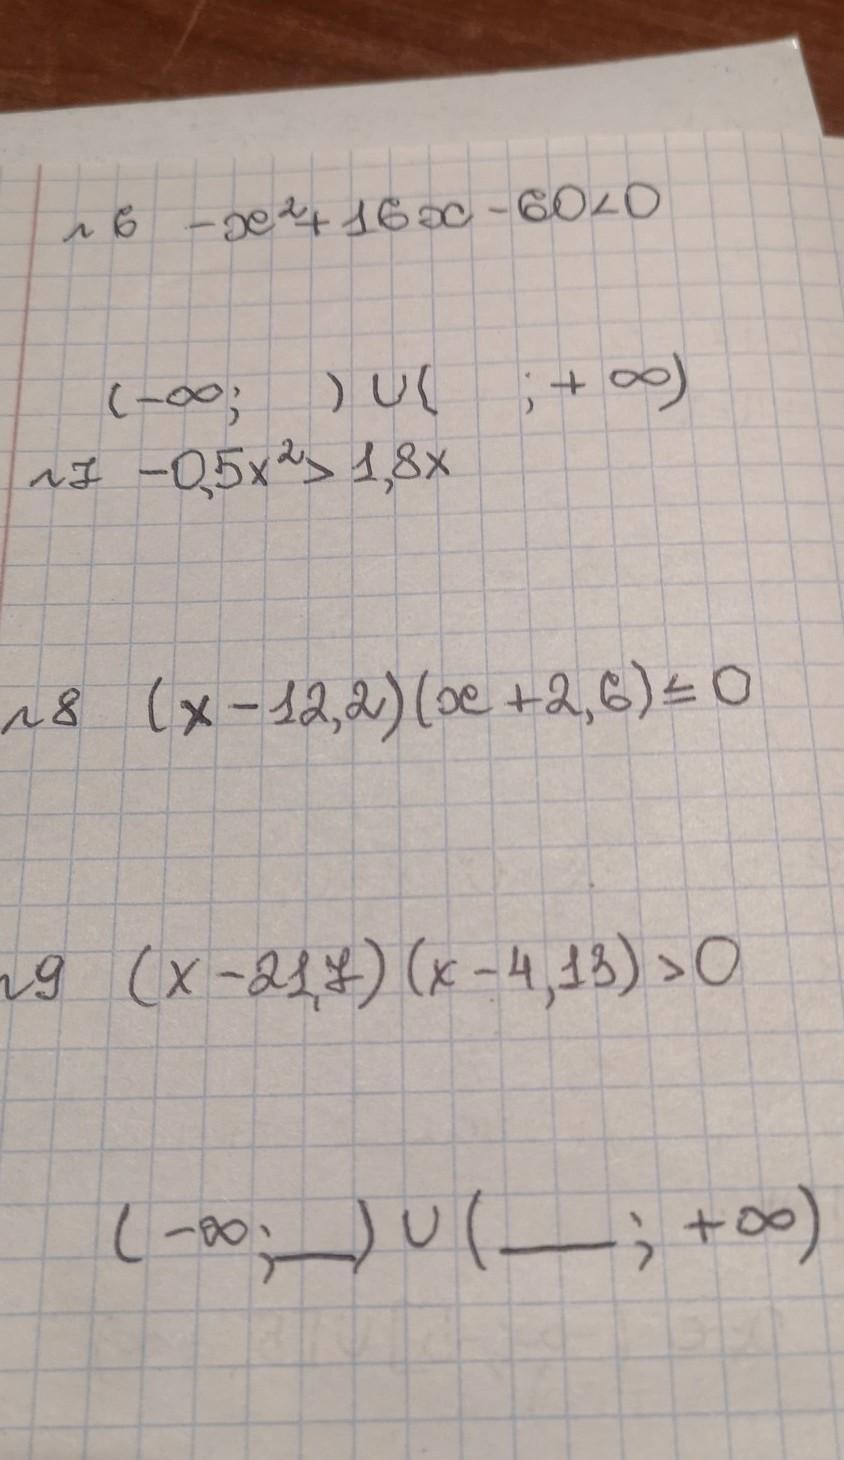 №6 -x²+16x-60<0
(-∞; ) ∪ ( ; +∞)
№7 -0,5x²> 1,8x
№8 (x-12,2)(x+2,6)≤0
№9 (x-21,7)(x-4,13)>0
(-∞;__) ∪ (___; +∞)